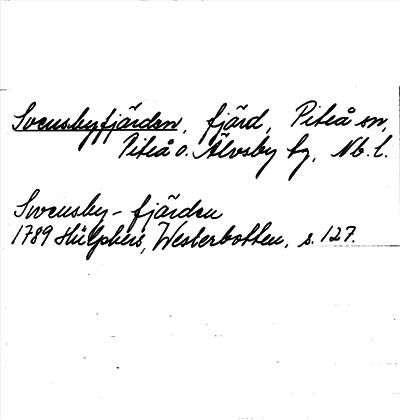 Svensbyfjärden, fjärd, Piteå sn,
Piteå o. Älvsby tg, Nb. l.
Swensby-fjärden
1789 Hülphers, Westerbotten, s. 127.